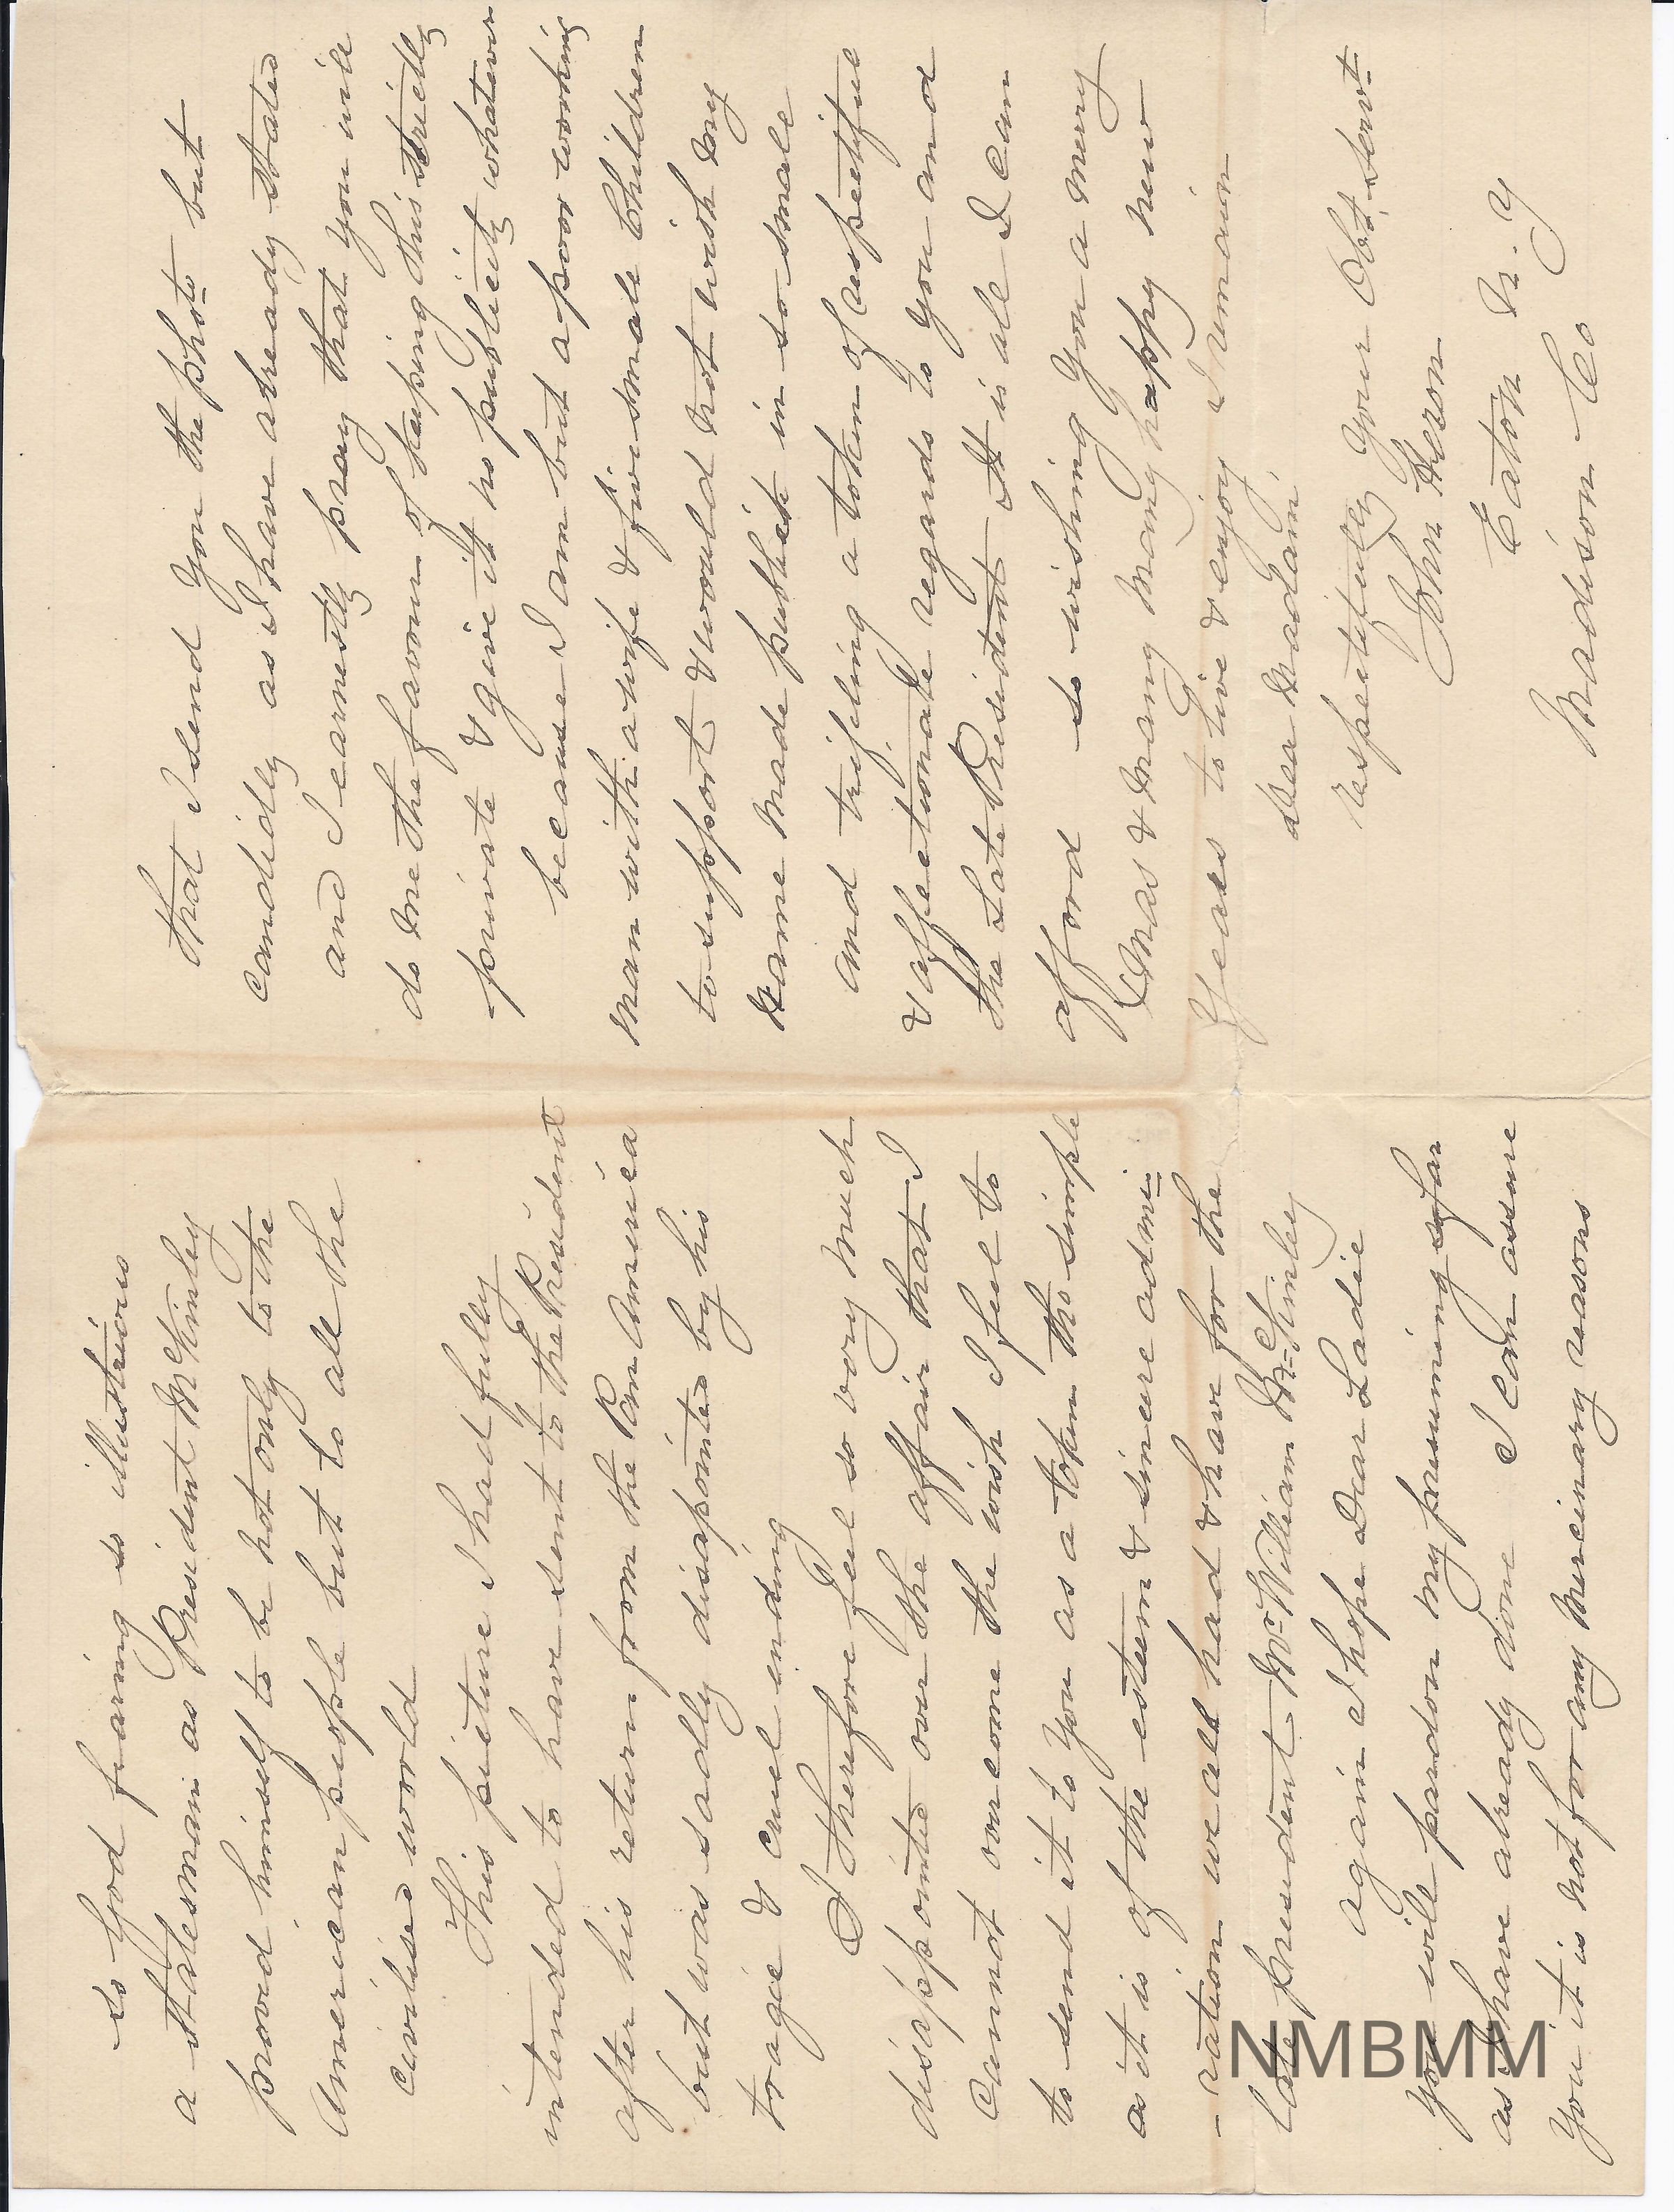 so God fearing so illustrious
a statesman as President McKinley
proved himself to be not only to the
American people but to all the
civilised world
This picture I had fully
intended to have sent to the President
after his return from the Pan America
but was sadly disapointed by his
tragic & cruel ending
I therefore feel so very much
disappointed over the affair that I
cannot overcome the wish I feel to
to send it to you as a token tho simple
as it is of the esteem & sincere admi
-ration we all had & have for the
late president Mr William McKinley
again I hope Dear Ladie
you will pardon my presuming so far
as I have already done I can assure
you it is not for any mercinary reasons
that I send you the photo but
candidly as I have already stated
and I earnestly pray that you will
do me the favour of keeping this strictly
private & give it no publicity whatever
because I am but a poor working
man with a wife & five small children
to support & would not wish my
name made publick in so small
and trifeling a token of respectful
& affectionate regards to you and
the Late President It is all I can
afford so wishing you a merry
Xmas & many many many happy new
years to live & enjoy I remain
dear Madam
respectifully your Obt. Servt.
John Heron
Eaton N.Y
Madison Co
NMBMM